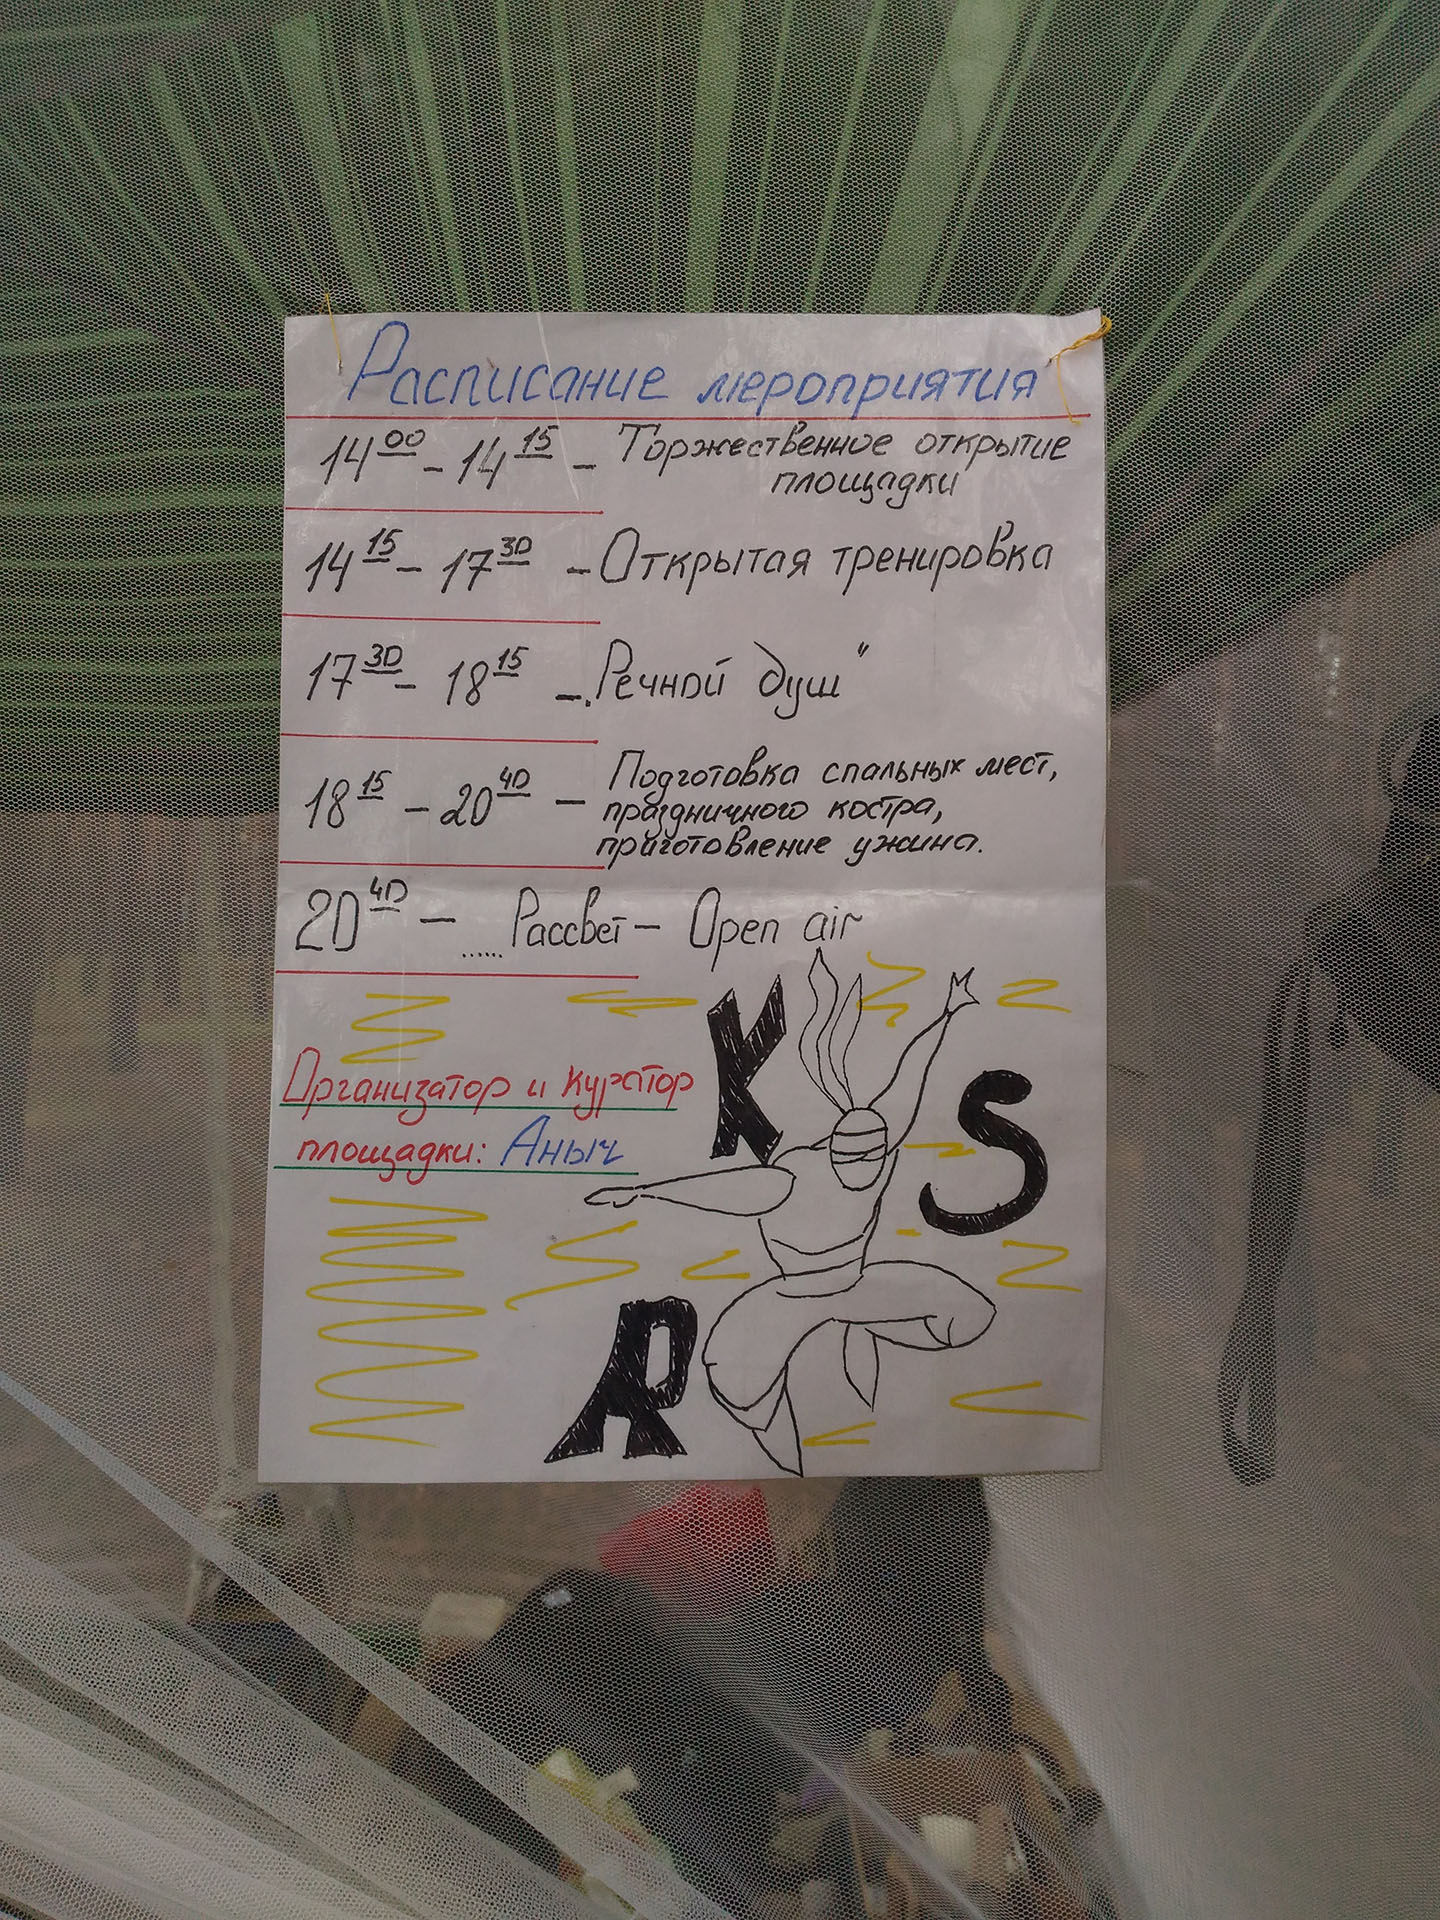 Расписание мероприятия
14 00 – 14 15 – Торжественное открытие
площадки
14 15 – 17 30 – Открытая тренировка
17 30 – 18 15 – „Речной душ"
18 15 – 20 40 – Подготовка спальных мест,
праздничного костра,
приготовление ужина.
20 40 – ...... Рассвет – Open air
K
S
Организатор и куратор
площадки: Аныч
R